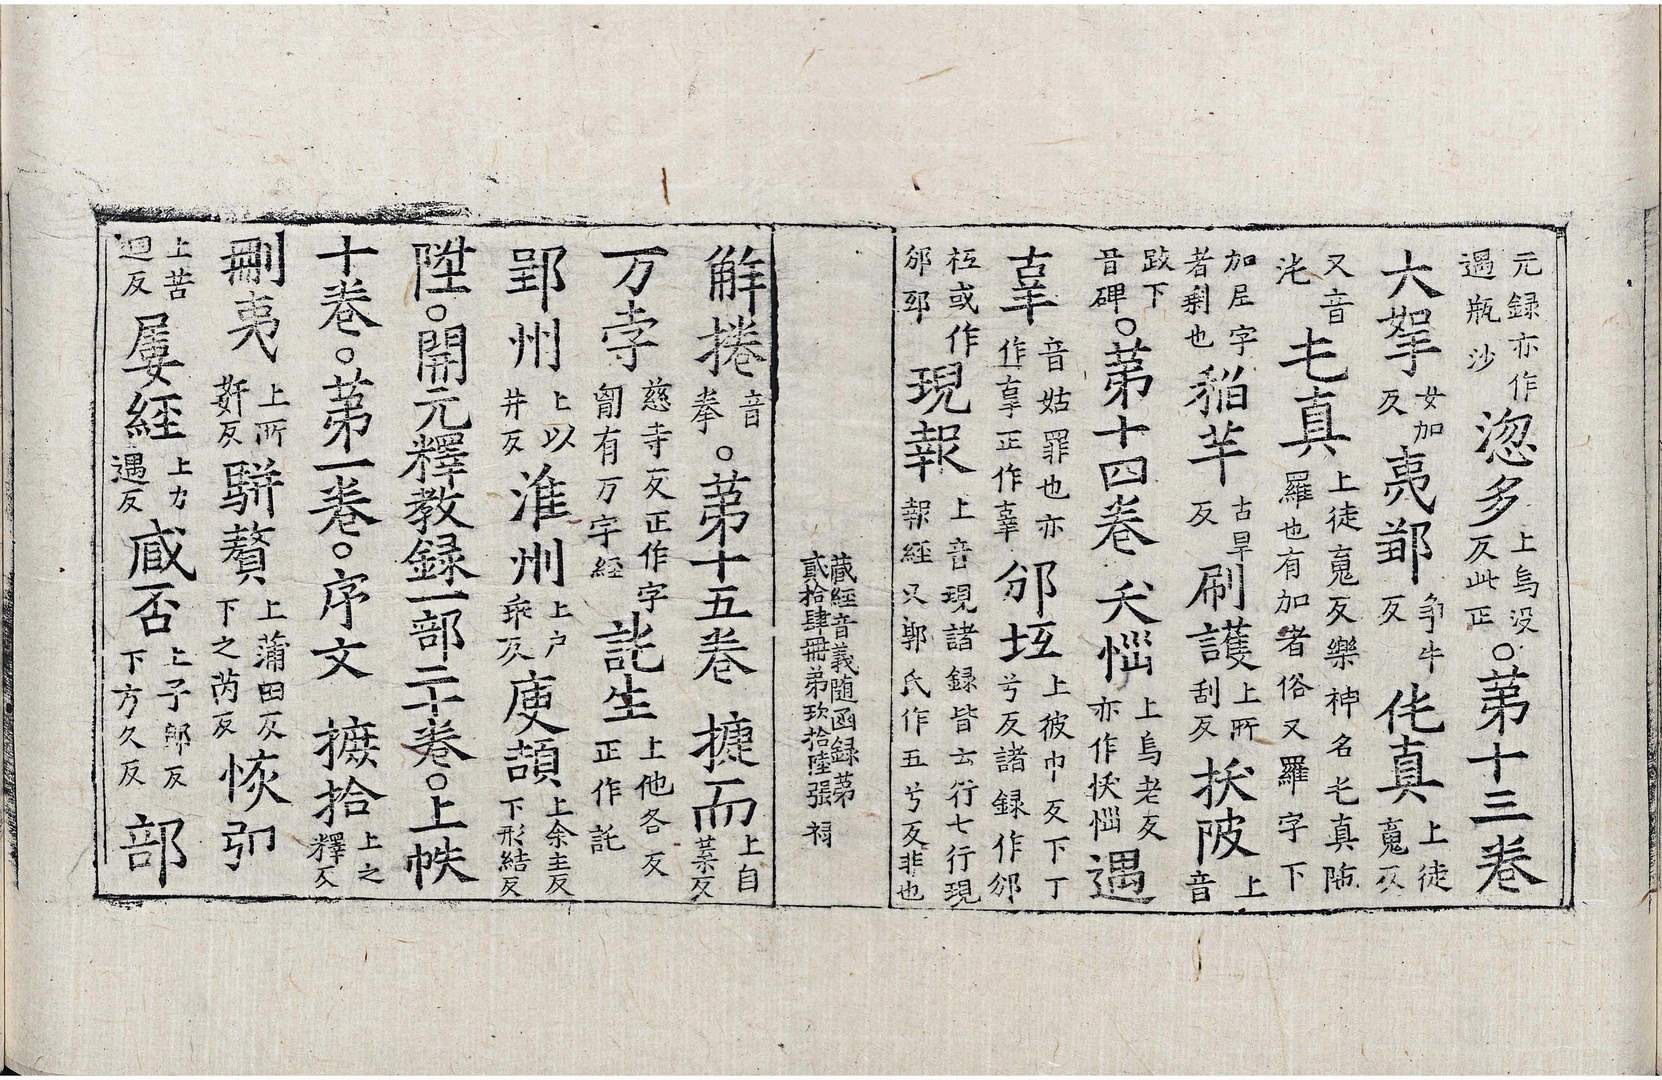 元録亦作遇瓶沙惚多上烏没反此正。第十三卷
大拏女加反夷鄄爭牛反佗真上徒䰟反
又音沱𡉏真上徒䰟反樂神名毛真陁羅也有加者俗又羅字下
加𡰱字者剩也稻芉古旱反刷護上所刮反扷陂上音
跛下音碑。第十四卷 夭惱上烏老反亦作㤇惱遇
辜音姑罪也亦作𦎫正作辜邠坘上彼巾反下丁兮反諸録作邠
柢或作邠邳現報上音現諸録皆云行七行現報經又郭氏作五兮反非也
藏經音義随函録第貳拾肆冊苐玖拾陸張 祠
觧捲音拳。第十五卷 㨗而上自葉反
万𡥉慈寺反正作字𦚾有万字經託生上他各反正作託
郢州上以井反淮州上户乖反庾頡上余主反下形結反
陞。開元釋教録一部二十卷。上帙
十卷。第一卷。序文 摭拾上之釋反
刪夷上所姧反駢贅上蒲田反下之芮反恢卲
上苦迴反屢經上力遇反臧否上子郎反下方久反部